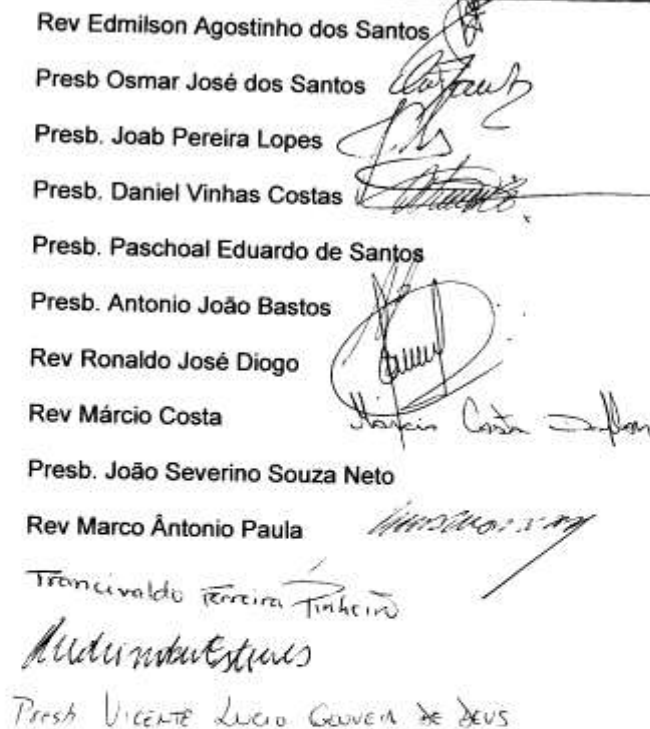 Rev Edmilson Agostinho dos Santos
Presb Osmar José dos Santos
Presb. Joab Pereira Lopes
Presb. Daniel Vinhas Costas
Presb. Paschoal Eduardo de Santos
Presb. Antonio João Bastos
Rev Ronaldo José Diogo
Rev Márcio Costa Márcio Costa
Presb. João Severino Souza Neto
Rev Marco Ântonio Paula
Francivaldo Ferreira Pinheiro
Presb VICENTE LUCIO GOUVEIA DE DEUS